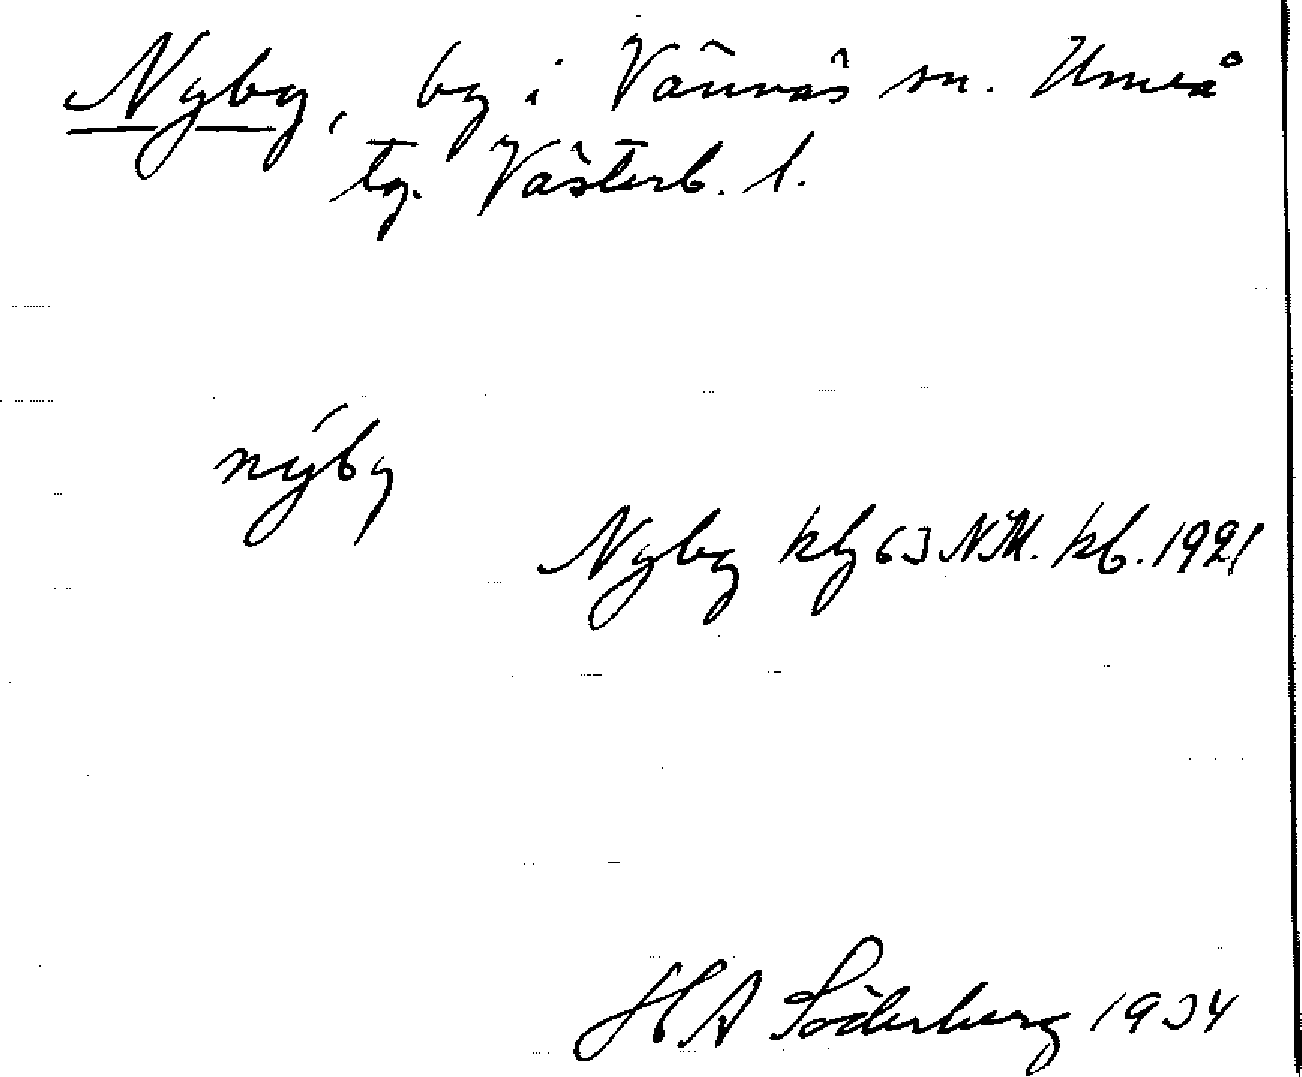 Nyby, by i Vännäs sn. Umeå
tg. Västerb. l.
nýby
Nyby kbl 63 NM. kb. 1921
H A Söderberg 1934